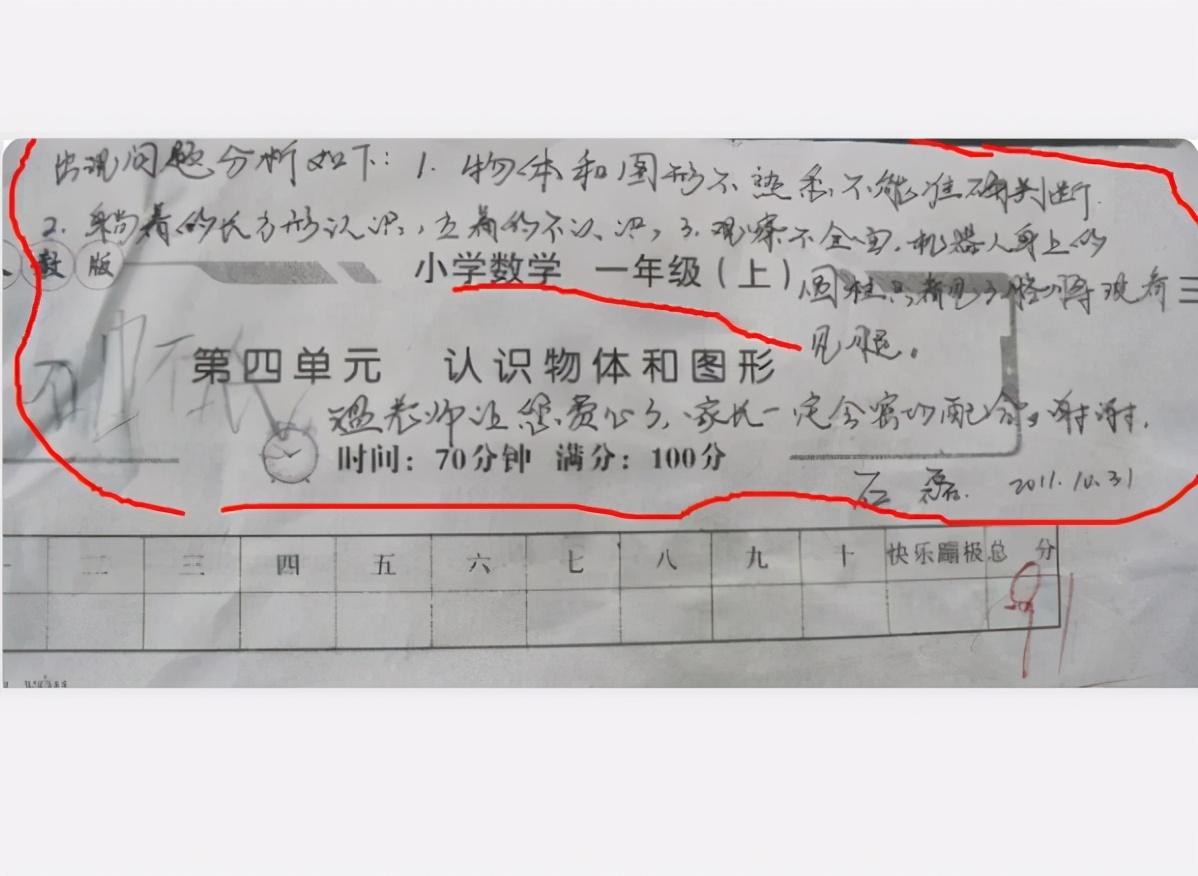 出现问题分析如下：1. 物体和图形不熟悉不能准确判断.
2. 躺着的长方形认识，立着的不认识，3. 观察不全面. 机器人身上的
教版
小学数学 一年级（上）
圆柱只看见了胳膊没看
见腿。
第四单元 认识物体和图形
老师让您费心了、家长一定会密切配合。谢谢.
时间：70分钟 满分：100分
石磊. 2011.10.31
二 三 四 五 六 七 八 九 十 快乐蹦极 总分
91